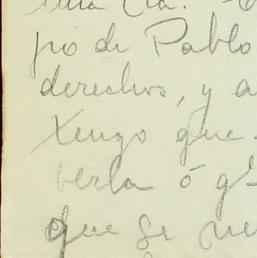 una Cía.
pio de Pablo
derechos, y a
tengo que
verla ó q
que se ve